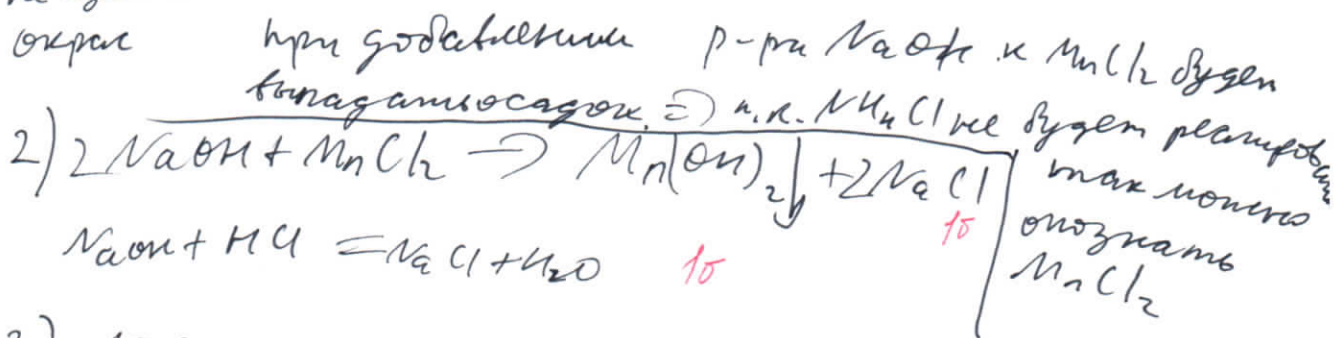 окрас при добавлении р-ра NaOH к MnCl₂ будет
выпадать осадок. => т.к. NH₄Cl не будет реагировать
так можно
опознать
MnCl₂
2) 2NaOH + MnCl₂ -> Mn(OH)₂↓ + 2NaCl
1б
NaOH + HCl = NaCl + H₂O 1б